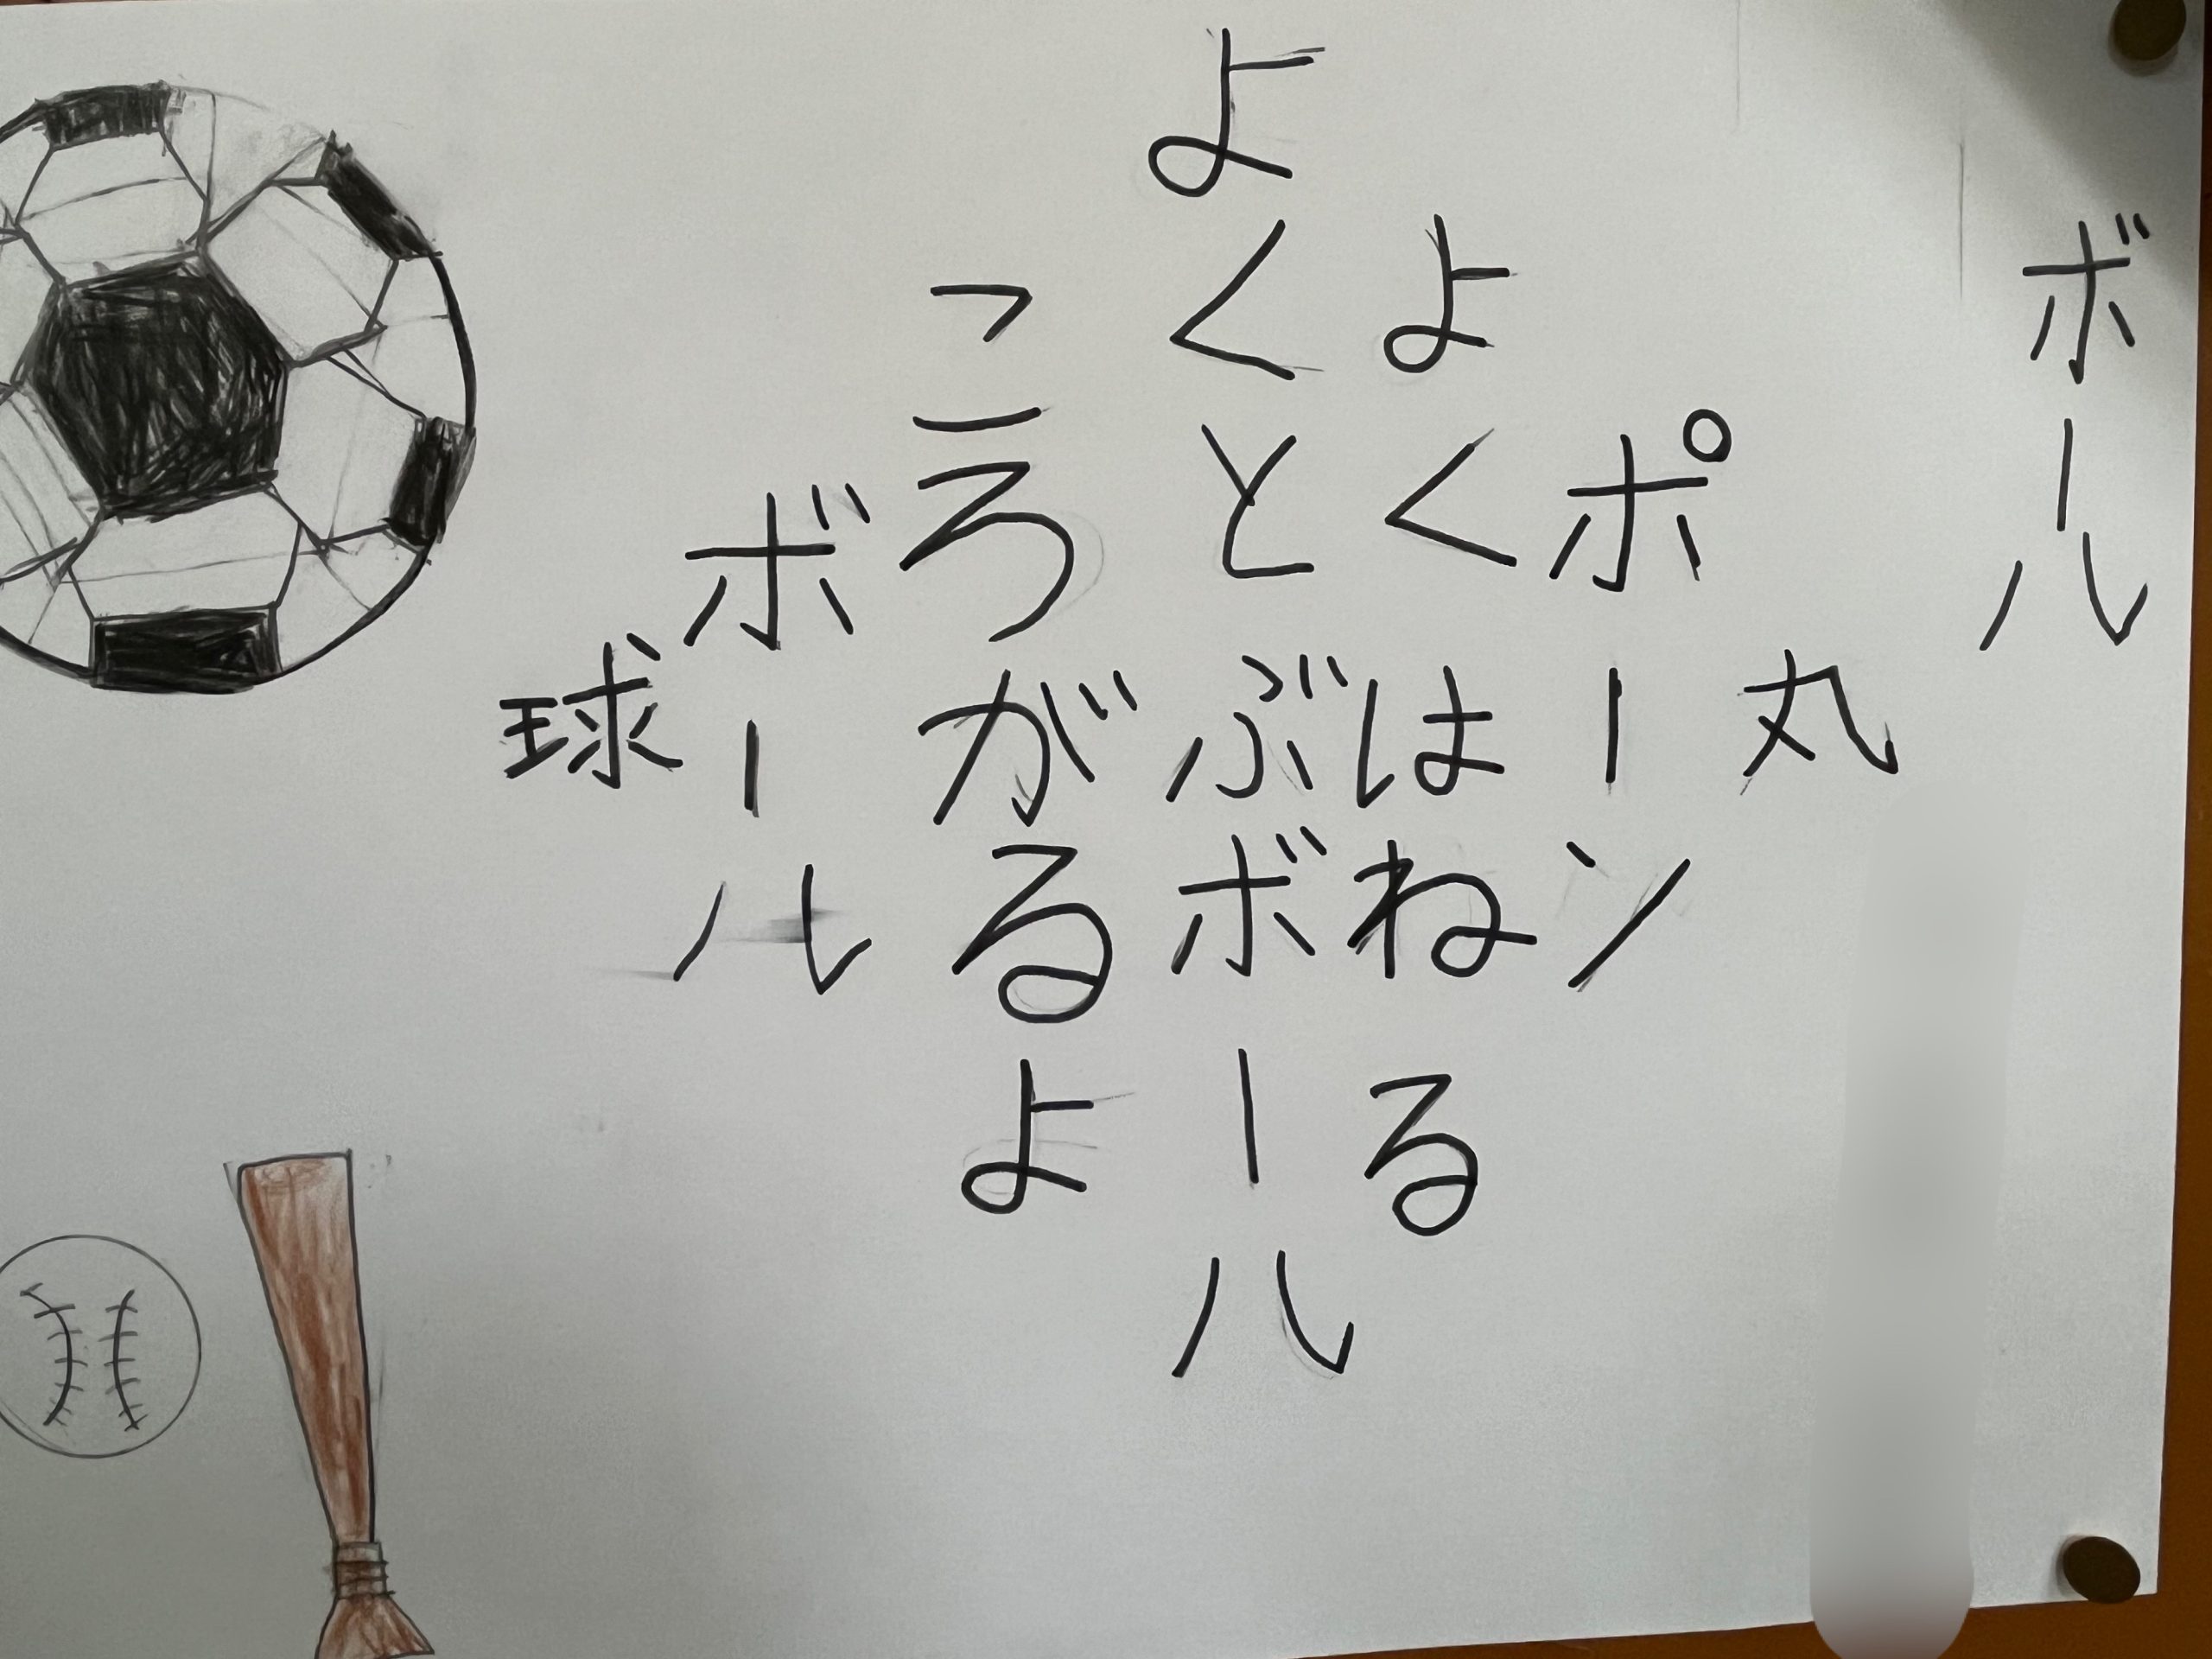 ボール
丸
ポーン
よくはねる
よくとぶボール
ころがるよ
ボール
球